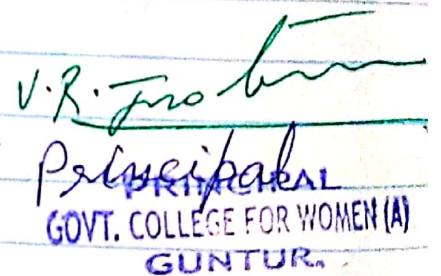 V.R.
Principal
PRINCIPAL
GOVT. COLLEGE FOR WOMEN (A)
GUNTUR.